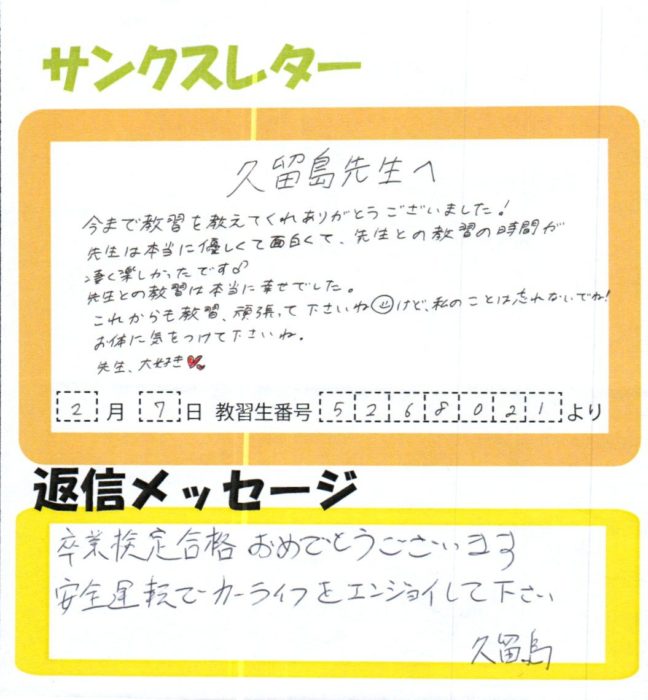 サンクスレター
久留島先生へ
今まで教習を教えてくれありがとうございました!
先生は本当に優しくて面白くて、先生との教習の時間が
凄く楽しかったです
先生との教習は本当に幸せでした。
これからも教習、頑張って下さいねけど、私のことは忘れないでね!
お体に気をつけて下さいね。
先生、大好き
2月7日 教習生番号 5268021より
返信メッセージ
卒業検定合格おめでとうございます
安全運転でカーライフをエンジョイして下さい
久留島